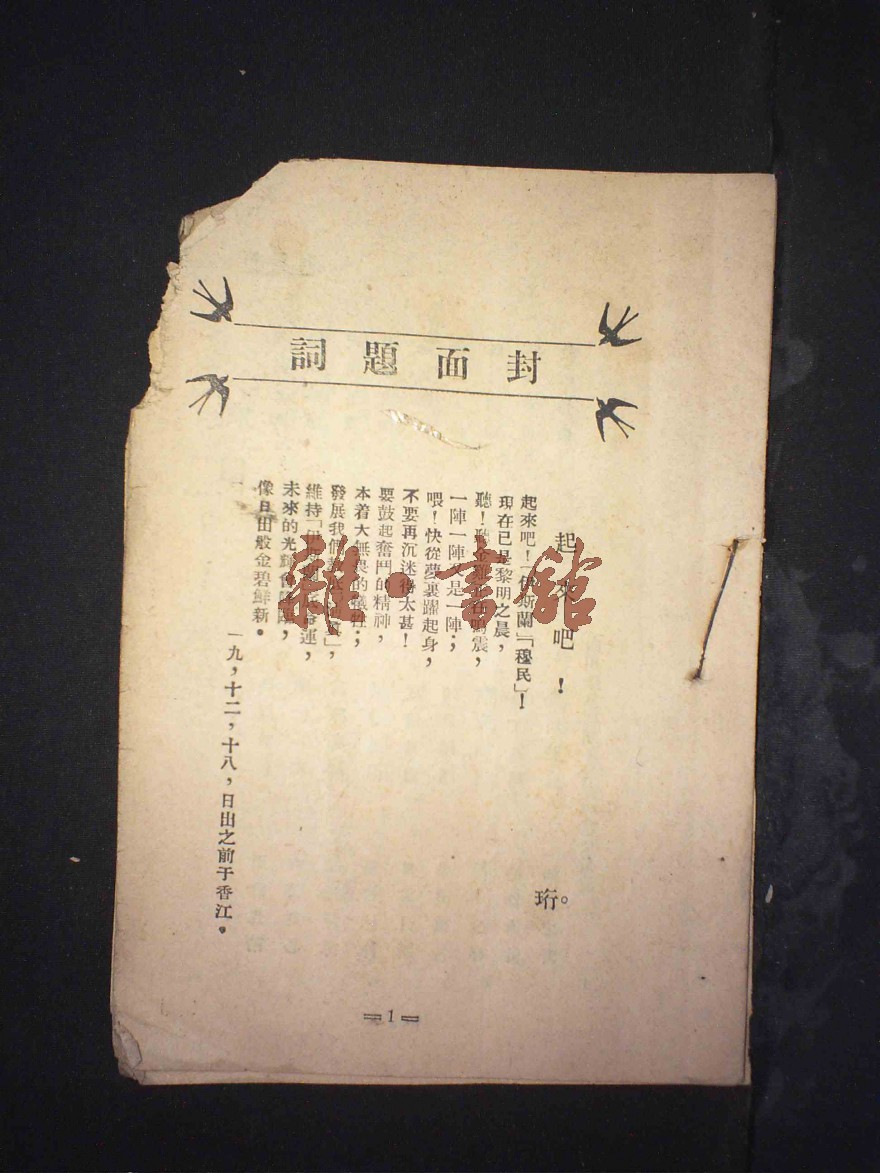 封面題詞
起來吧!
珩。
起來吧!「伊斯蘭」「穆民」!
現在已是黎明之晨,
聽!聽金雞正在鳴震,
一陣一陣又是一陣;
喂!快從夢裏躍起身,
不要再沉迷得太甚!
要鼓起奮鬥的精神,
本着大無畏的犧牲;
發展我們」,
維持「伊斯蘭運,
未來的光輝會,
像日田般金碧鮮新。
一九,十二,十八,日出之前于香江。
1
雜·書館